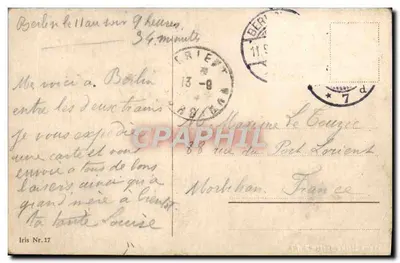 Berlin le 11 au soir 9 heures
34 minutes
Me voici à Berlin
entre les deux trains
je vous expédie
une carte et vous
envoie à tous de bons
baisers, ainsi qu'à
grand mère à
ta tante Louise
Iris Nr. 17
BERLIN
11.9
* 7 d
LORIENT
13 - 9
MORBIHAN
Maxime Le
88 rue du Port Lorient
Morbihan. France